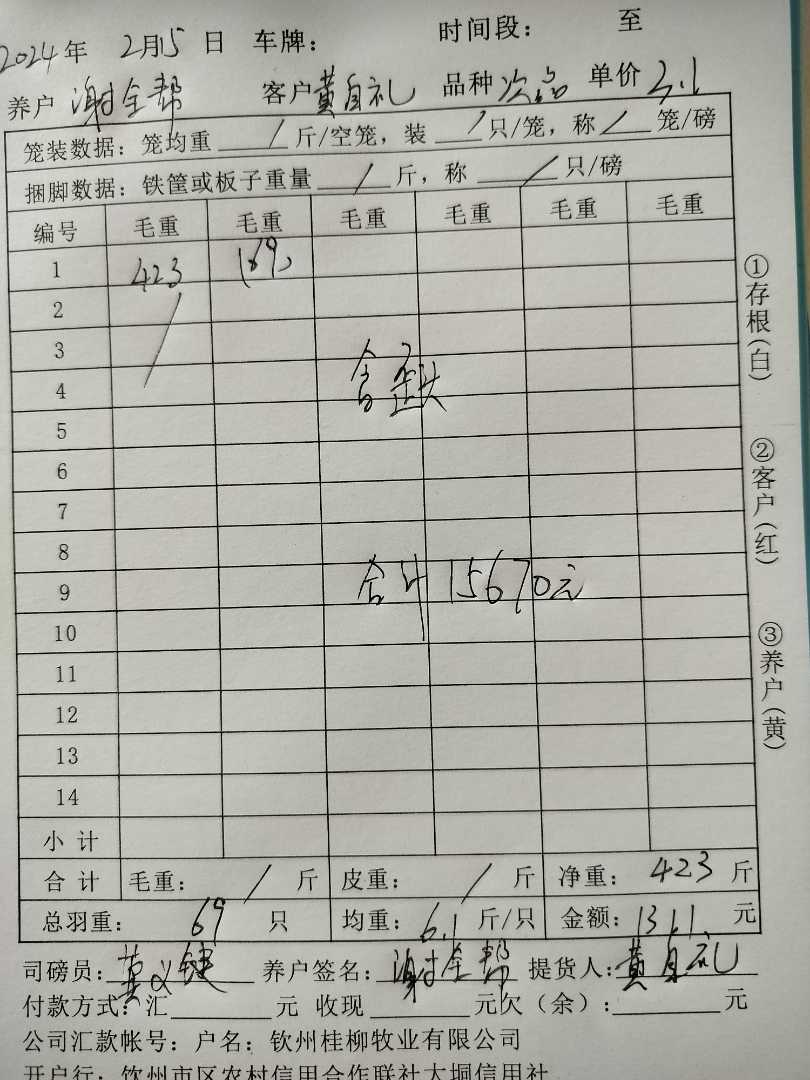 2024年 2月15日 车牌： 时间段： 至
养户 谢全帮 客户 黄自礼 品种 次品 单价 3.1
笼装数据：笼均重 / 斤/空笼，装 / 只/笼，称 / 笼/磅
捆脚数据：铁筐或板子重量 / 斤，称 / 只/磅
编号 毛重 毛重 毛重 毛重 毛重 毛重
1 423 (69)
2 /
3
4 含歪头
5
6
7
8
9 合计15670元
10
11
12
13
14
小计
合计 毛重： / 斤 皮重： / 斤 净重：423斤
总羽重：69只 均重：6.1斤/只 金额：1311.元
司磅员：莫义键 养户签名：谢全帮 提货人：黄自礼
付款方式：汇 元 收现 元欠（余）： 元
公司汇款帐号：户名：钦州桂柳牧业有限公司
开户行：钦州市区农村信用合作联社大垌信用社
①存根（白）
②客户（红）
③养户（黄）